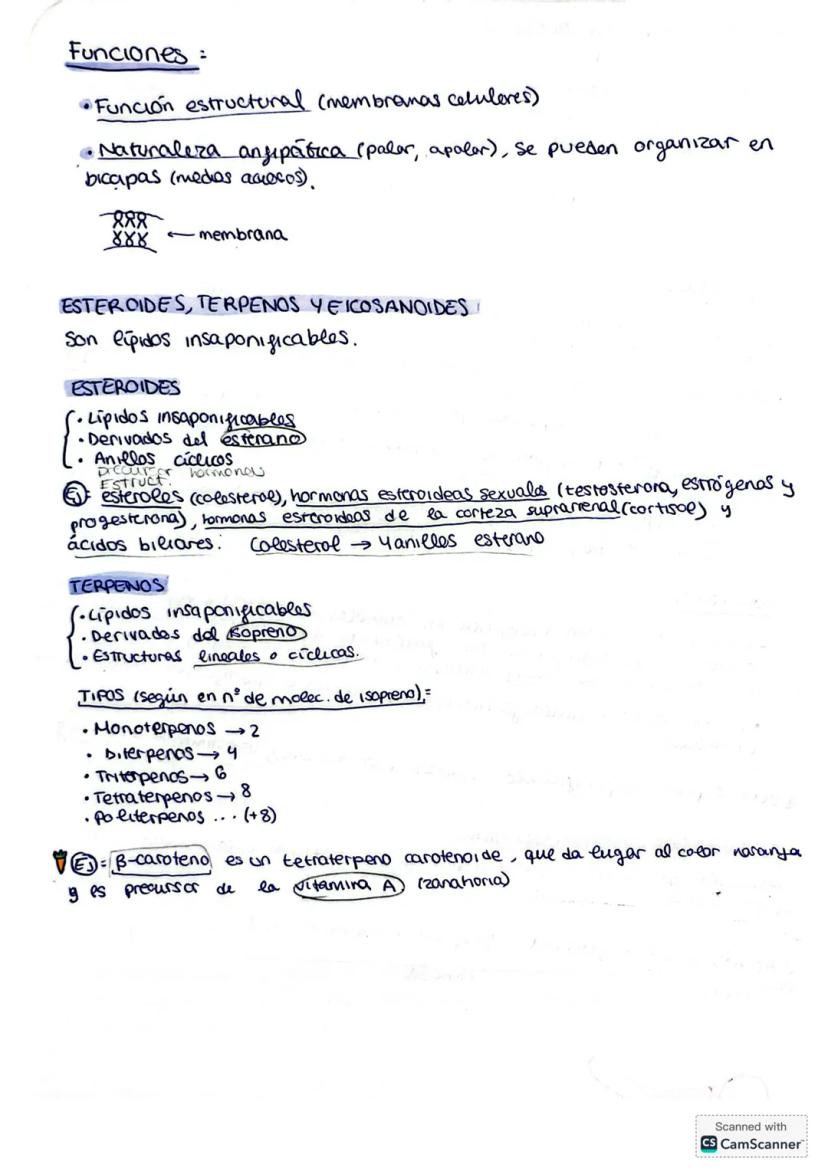 Funciones :
• Función estructural (membranas celulares)
• Naturaleza anfipática (polar, apolar), se pueden organizar en
bicapas (medios acuosos).
← membrana
ESTEROIDES, TERPENOS Y EICOSANOIDES
Son lípidos insaponificables.
ESTEROIDES
• Lípidos insaponificables
• Derivados del esterano
• Anillos cíclicos
precursor hormonas
Estruct.
Ej: esteroles (colesterol), hormonas esteroideas sexuales (testosterona, estrógenos y
progesterona), hormonas esteroideas de la corteza suprarrenal (cortisol) y
ácidos biliares. Colesterol → 4 anillos esterano
TERPENOS
• Lípidos insaponificables
• Derivados del isopreno
• Estructuras lineales o cíclicas.
TIPOS (según en nº de molec. de isopreno):
• Monoterpenos → 2
• Diterpenos → 4
• Triterpenos → 6
• Tetraterpenos → 8
• Politerpenos ... (+8)
Ej = β-caroteno es un tetraterpeno carotenoide, que da lugar al color naranja
y es precursor de la vitamina A (zanahoria)
Scanned with
CS CamScanner